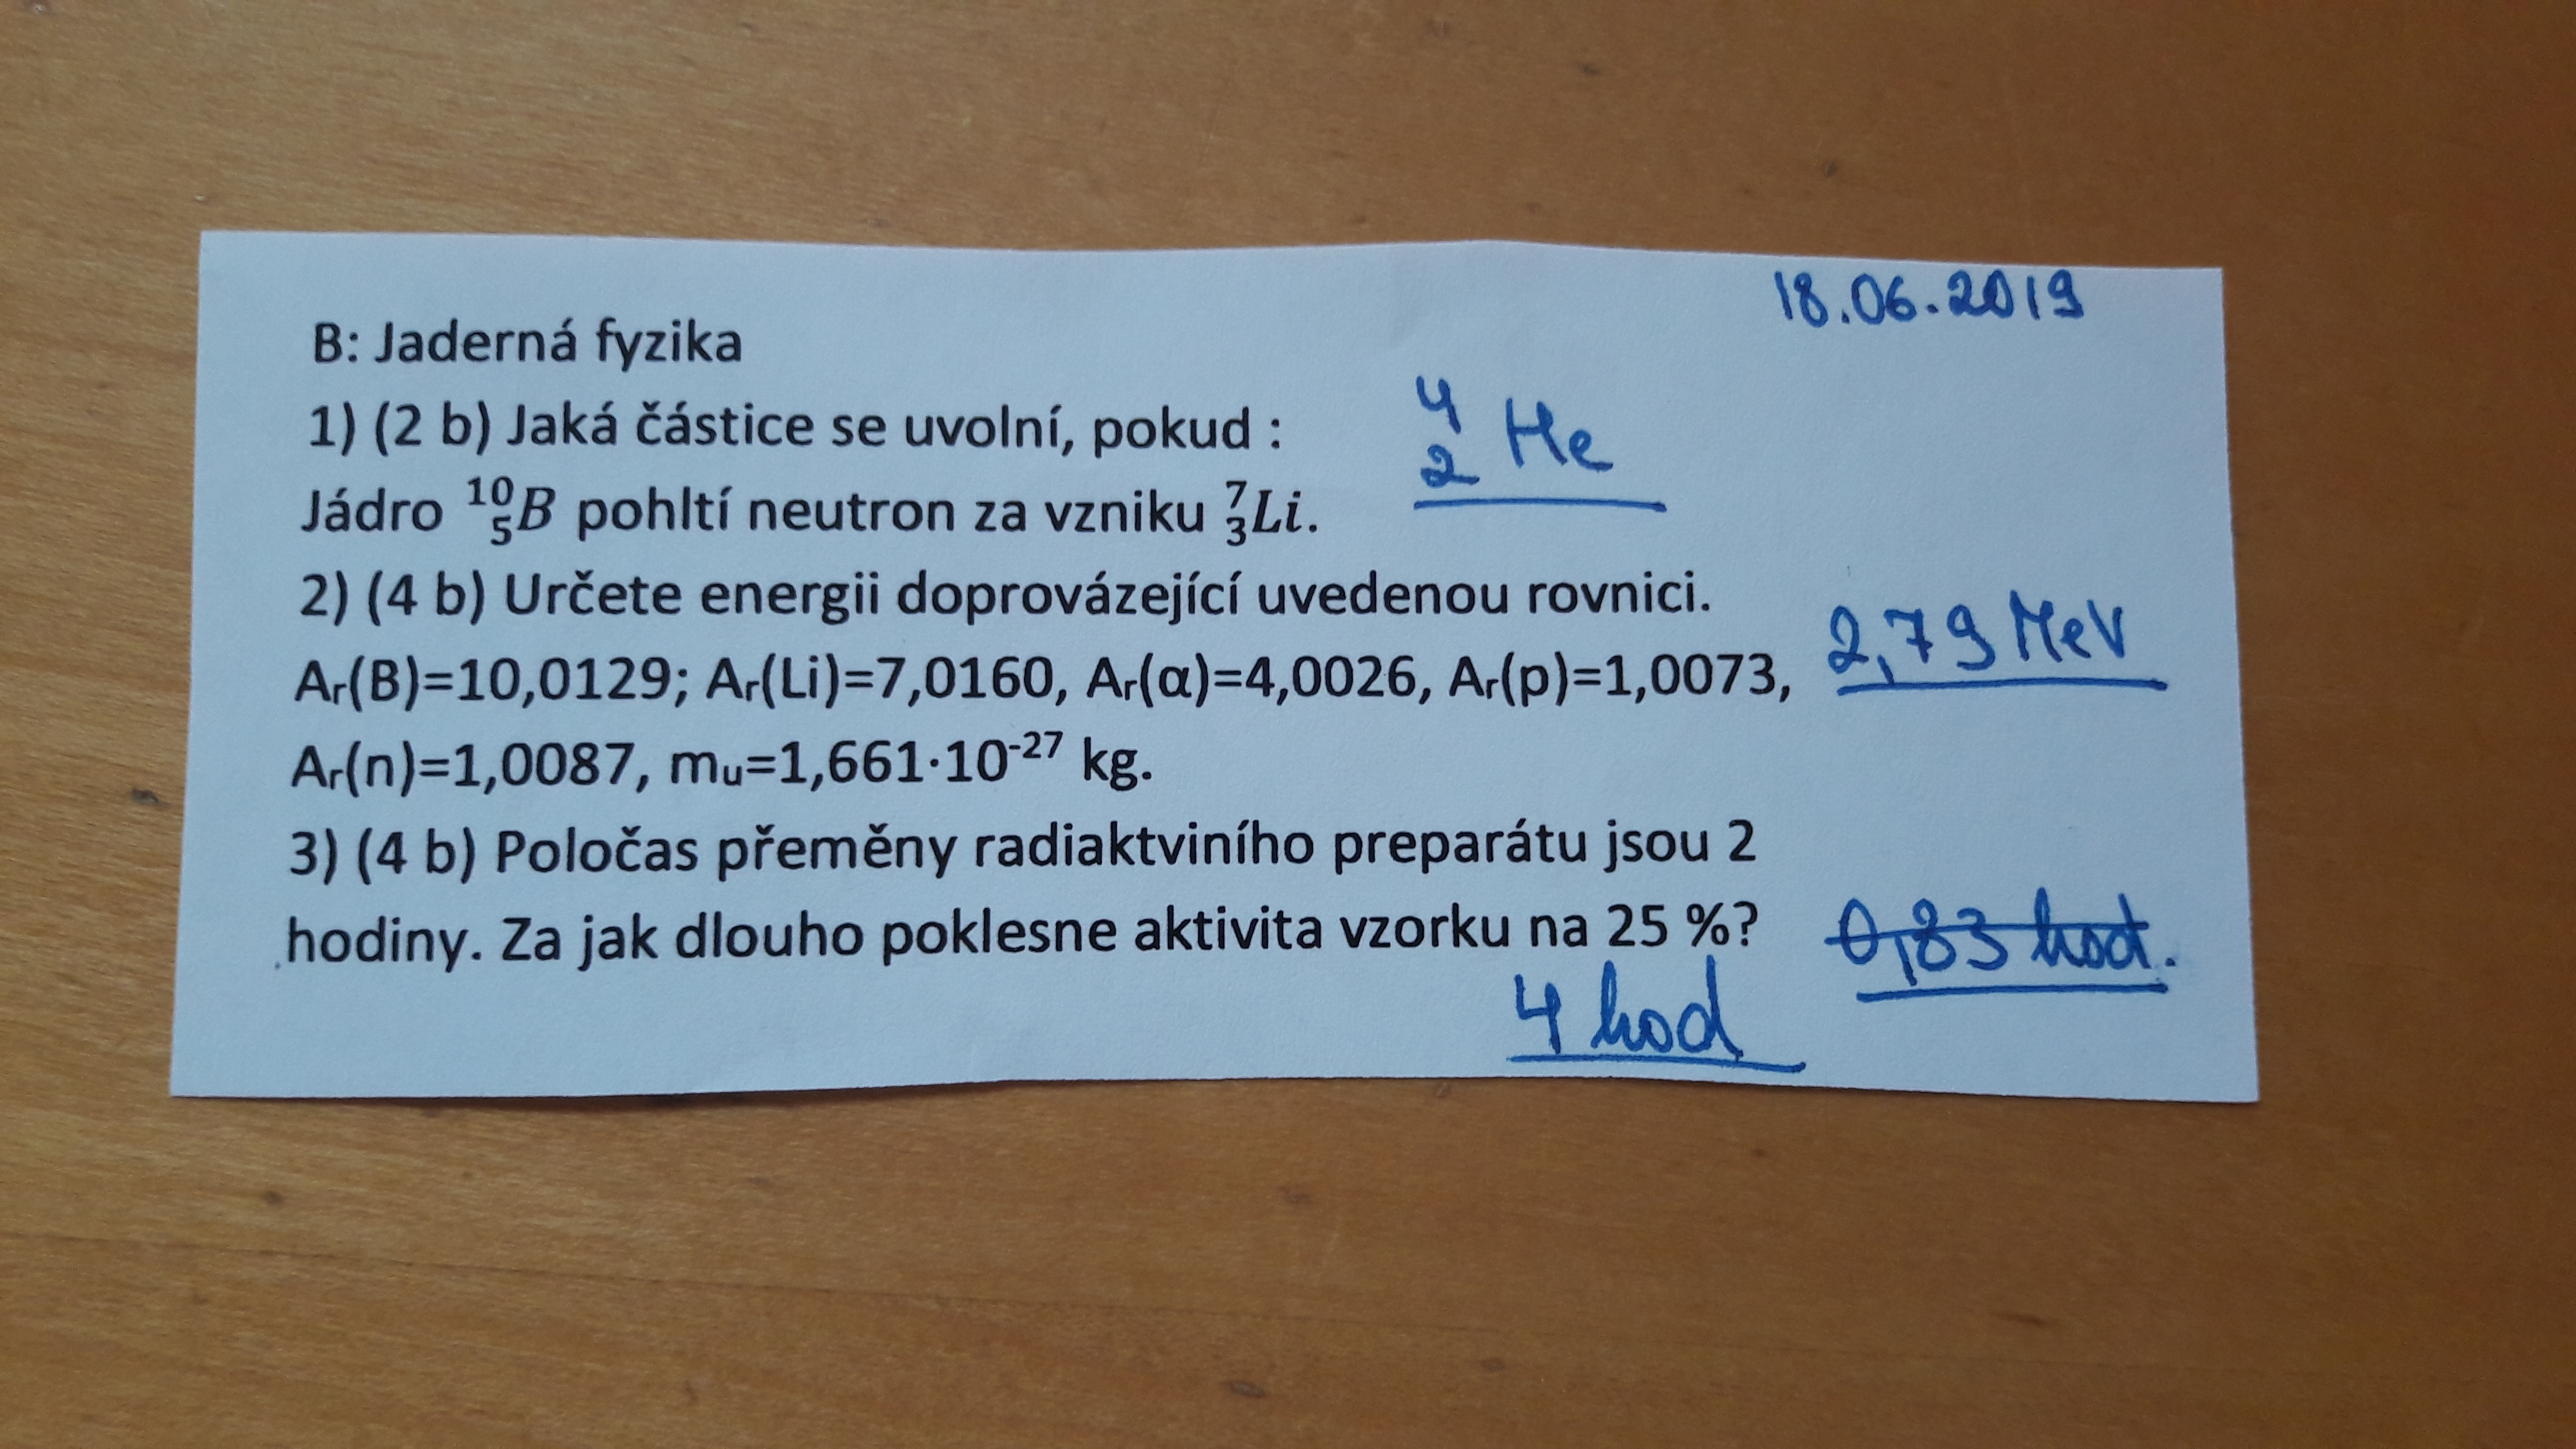 18.06.2019
B: Jaderná fyzika
1) (2 b) Jaká částice se uvolní, pokud :
⁴₂He
Jádro ¹⁰₅B pohltí neutron za vzniku ⁷₃Li.
2) (4 b) Určete energii doprovázející uvedenou rovnici.
2,79 MeV
Aᵣ(B)=10,0129; Aᵣ(Li)=7,0160, Aᵣ(α)=4,0026, Aᵣ(p)=1,0073,
Aᵣ(n)=1,0087, mᵤ=1,661·10⁻²⁷ kg.
3) (4 b) Poločas přeměny radiaktviního preparátu jsou 2
hodiny. Za jak dlouho poklesne aktivita vzorku na 25 %?
0,83 hod.
4 hod